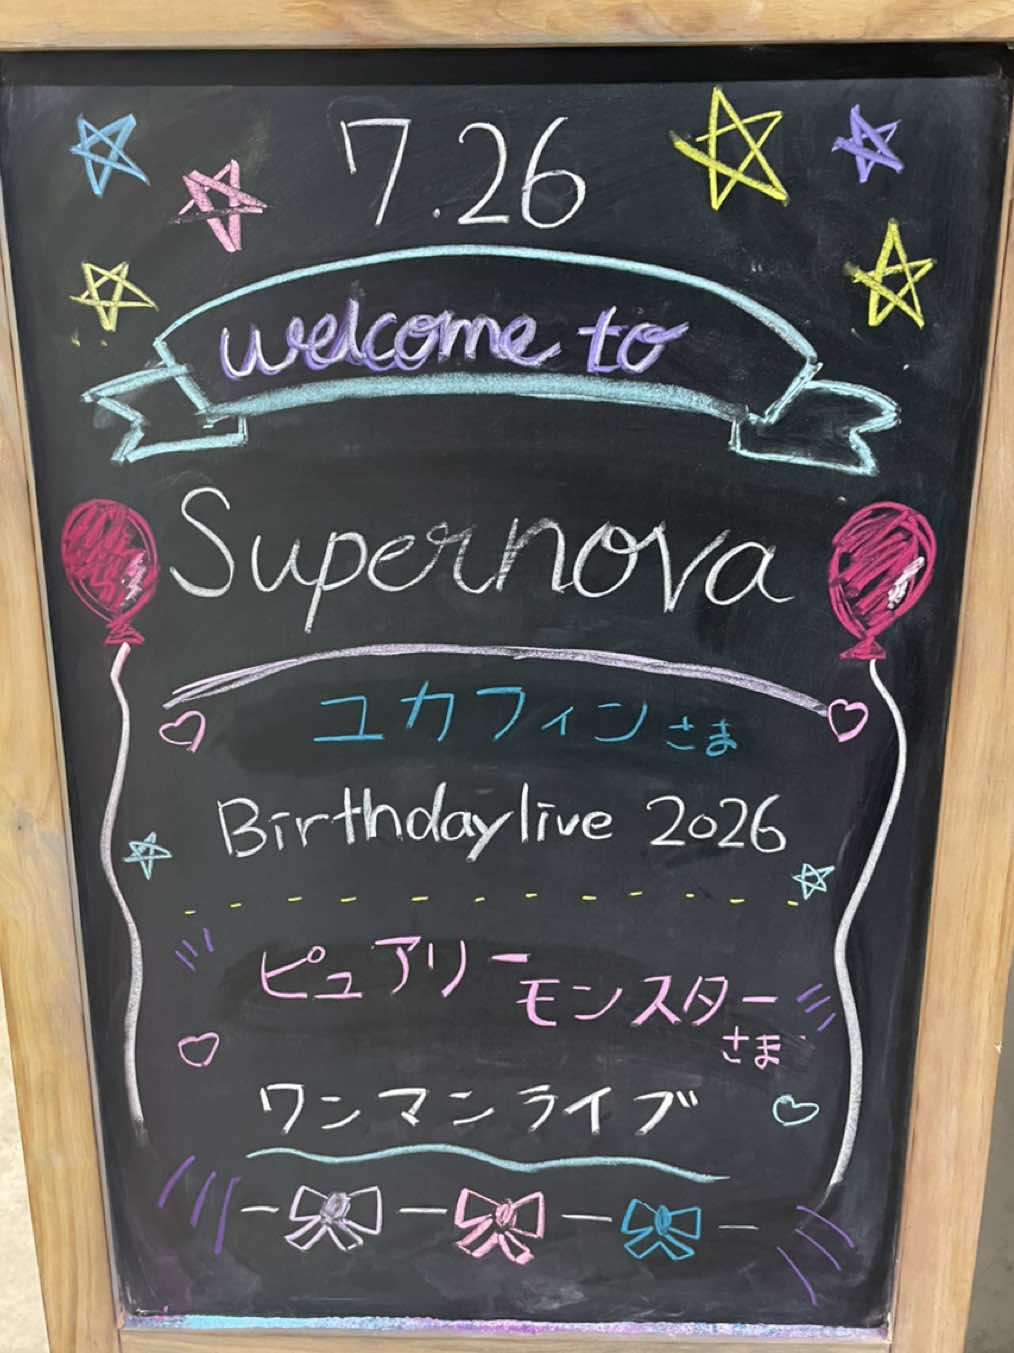 7.26
welcome to
Supernova
ユカフィンさま
Birthdaylive 2026
ピュアリーモンスター
さま
ワンマンライブ